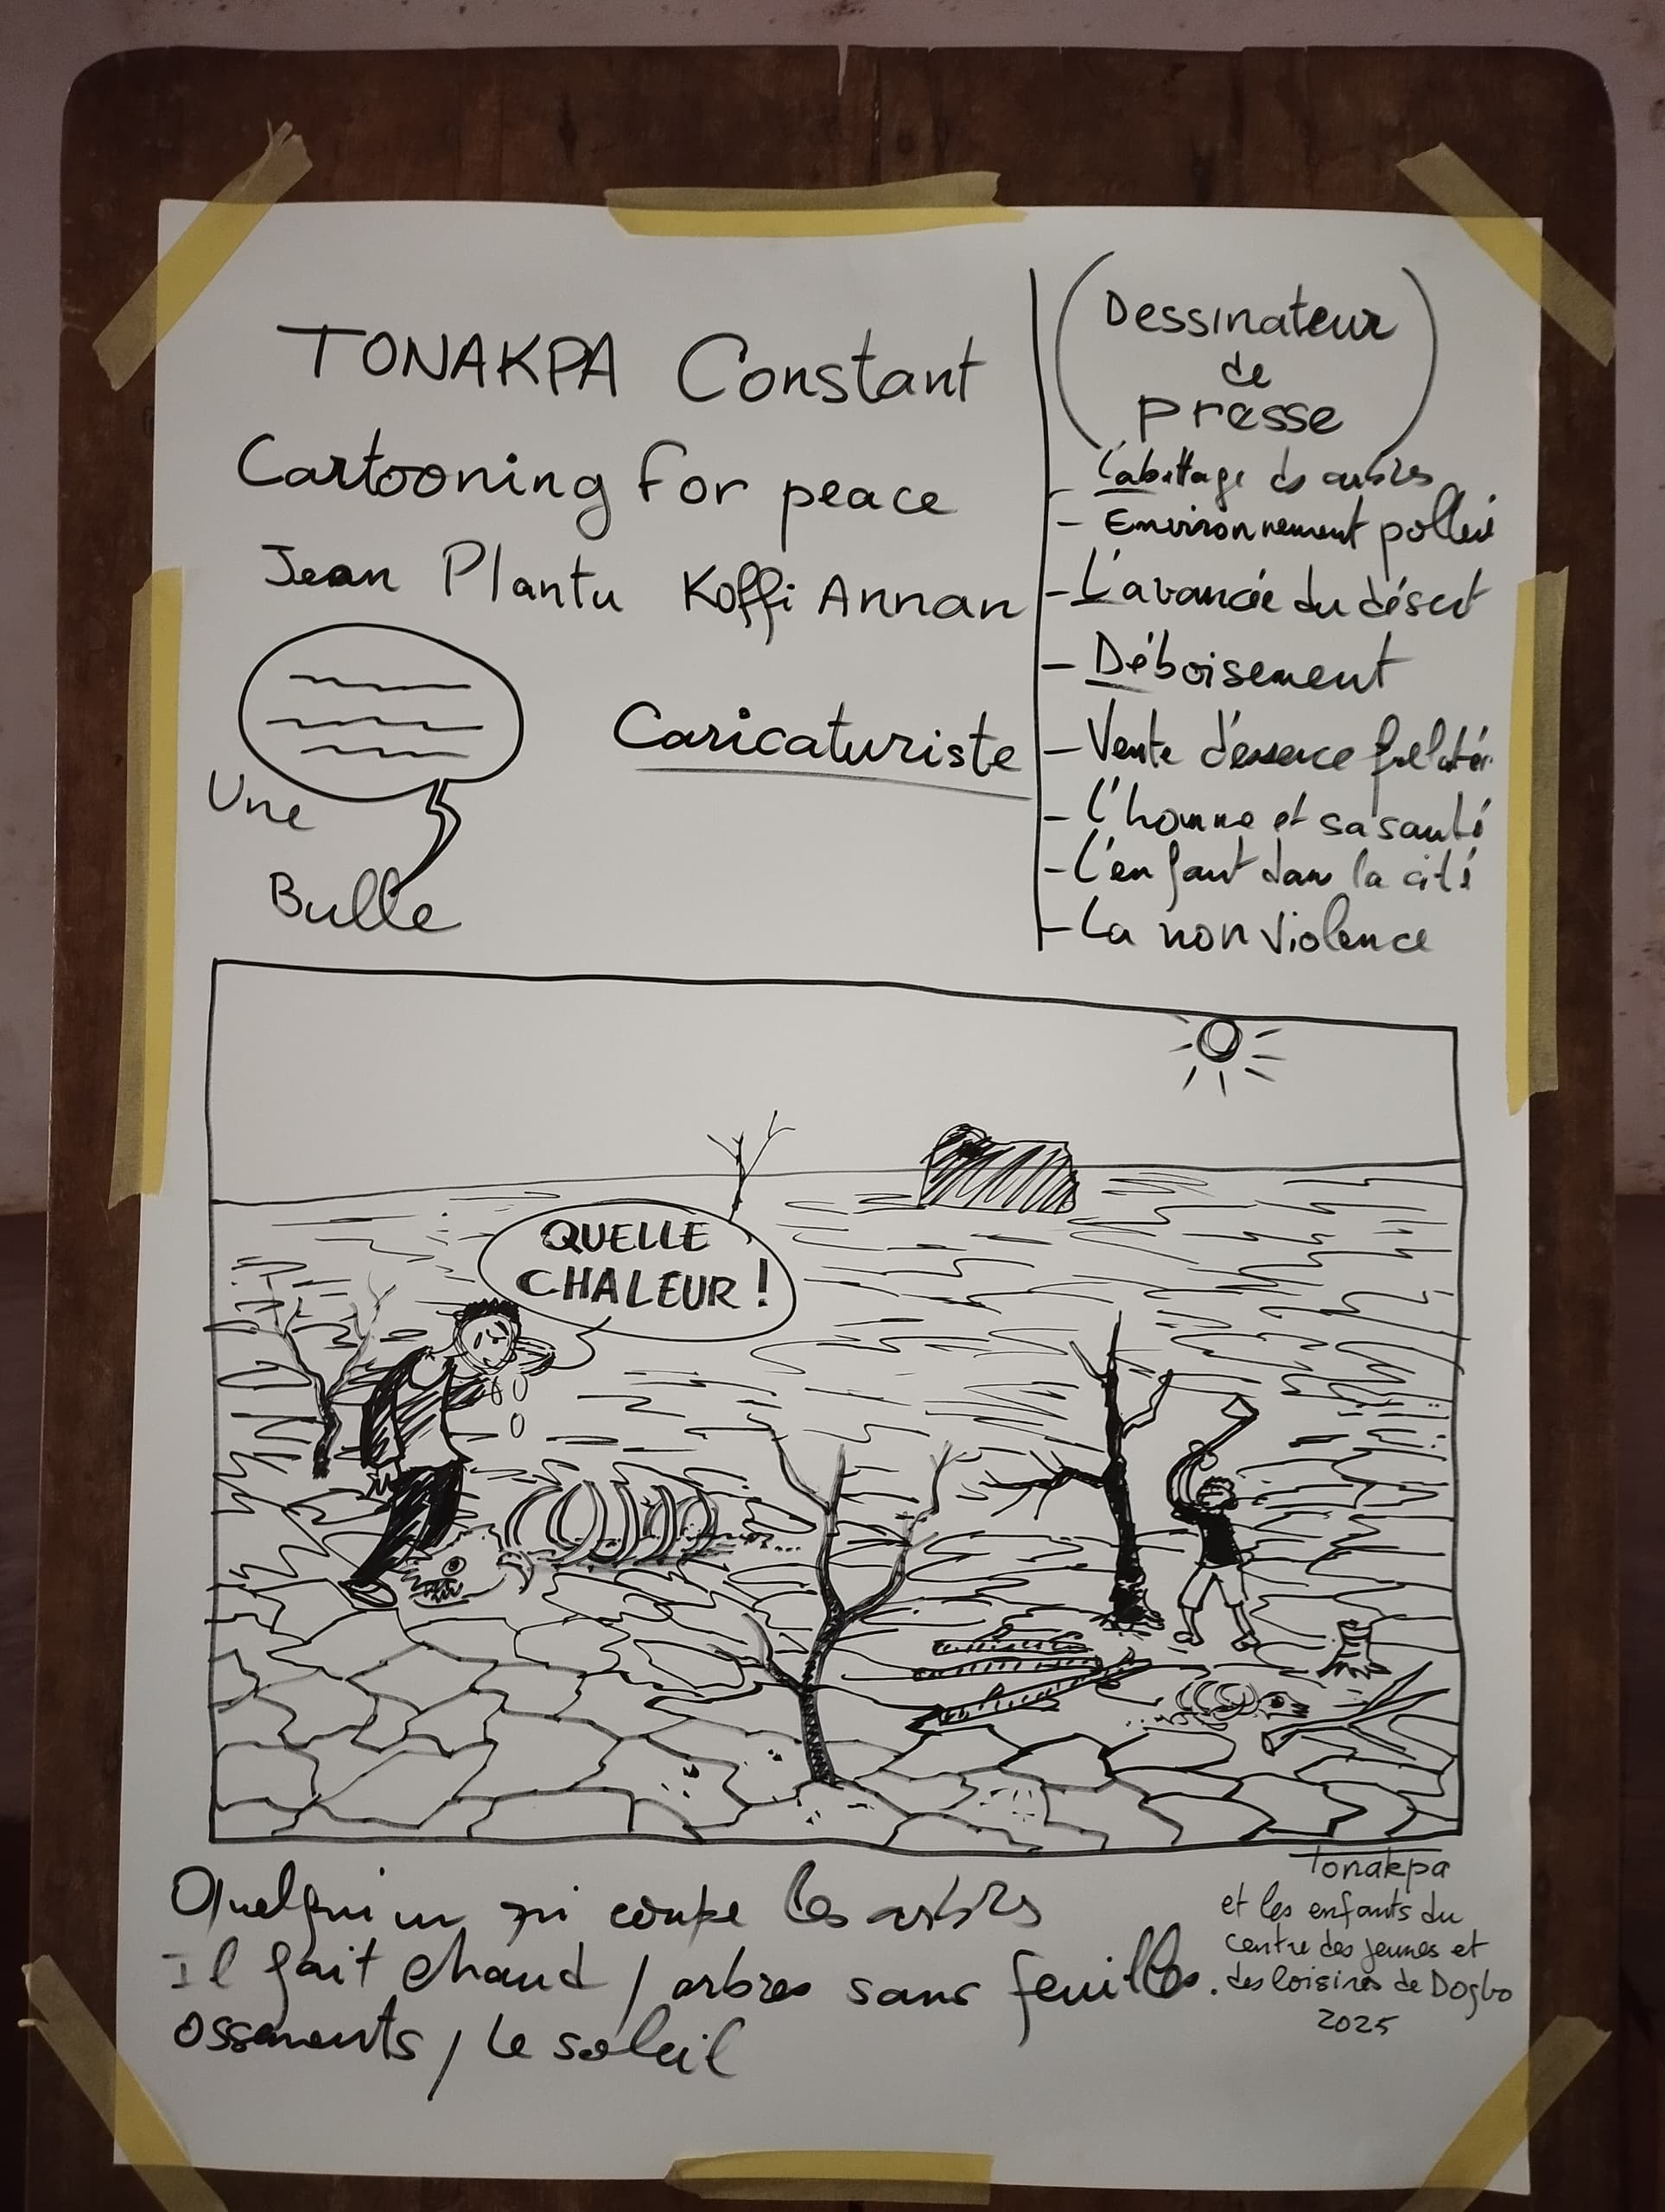 TONAKPA Constant
Cartooning for peace
Jean Plantu Koffi Annan
Caricaturiste
Une
Bulle
(Dessinateur
de
presse)
- L'abattage des arbres
- Environnement pollué
- L'avancée du désert
- Déboisement
- Vente d'essence frelatée
- L'homme et sa santé
- L'enfant dans la cité
- La non violence
QUELLE
CHALEUR !
Quelqu'un qui coupe les arbres
Il fait chaud / arbres sans feuilles.
ossements / Le soleil
Tonakpa
et les enfants du
centre des jeunes et
des loisirs de Dogbo
2025